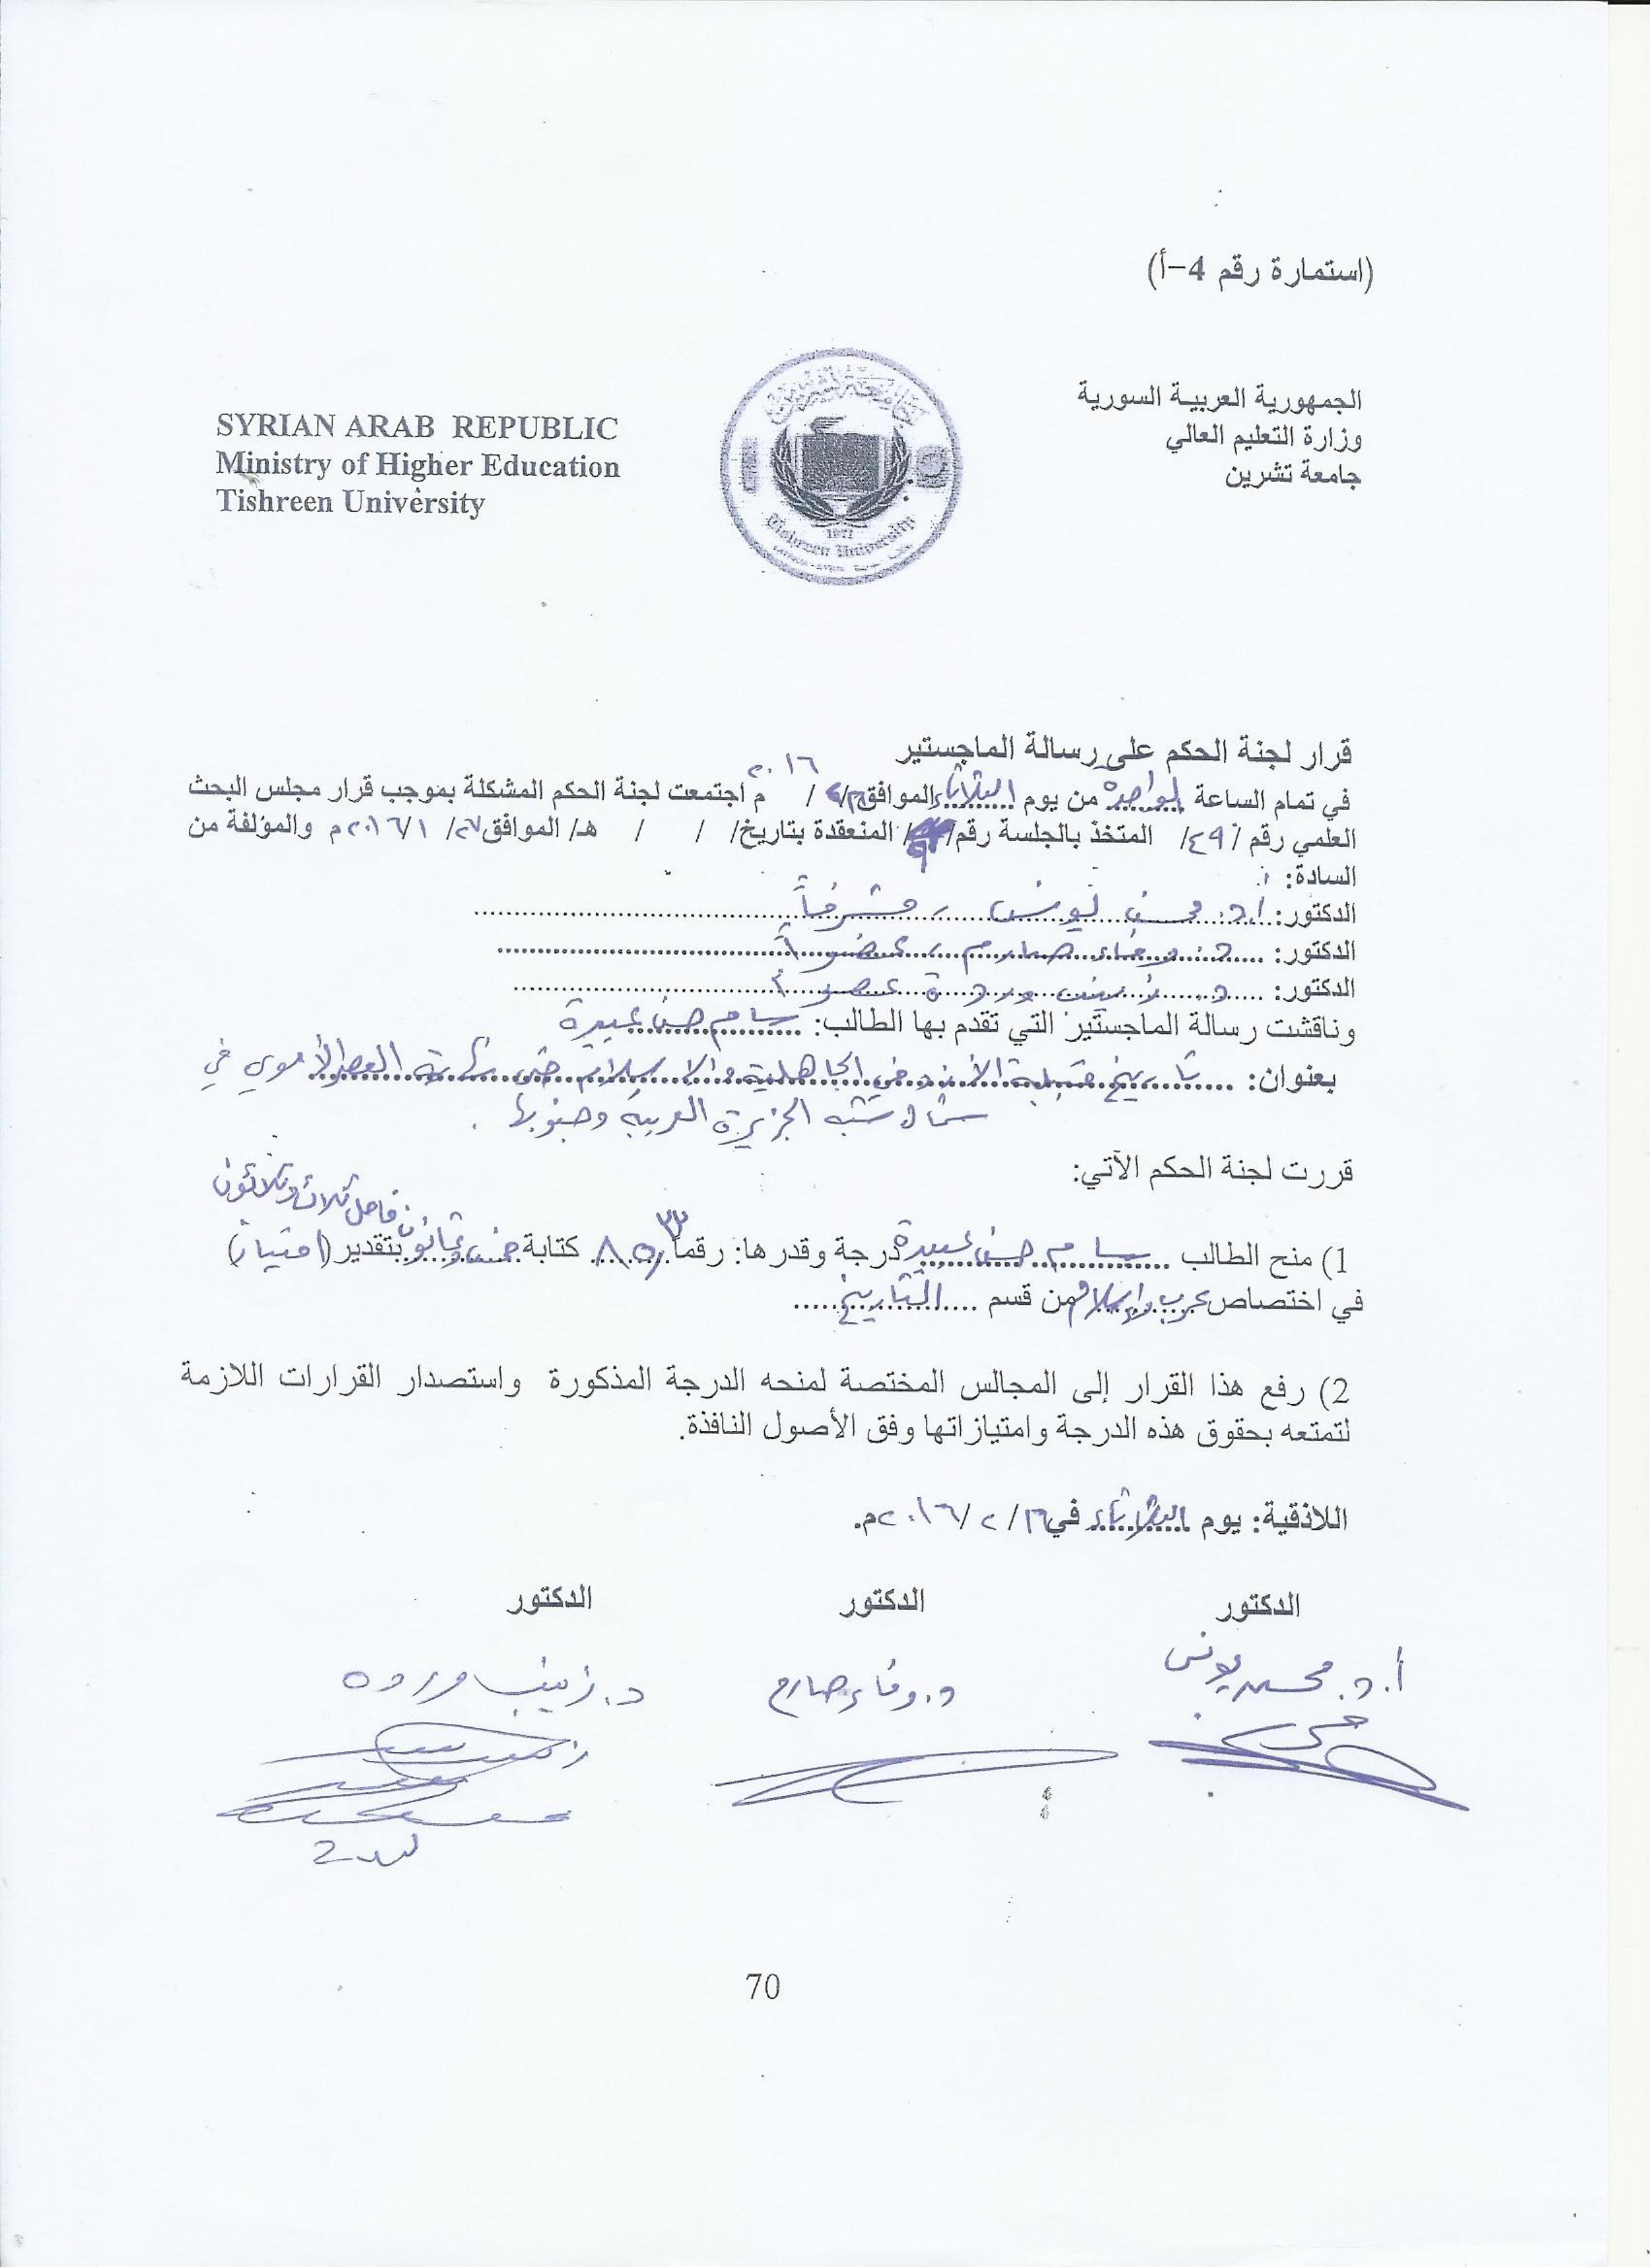 (استمارة رقم 4-أ)
الجمهورية العربية السورية
وزارة التعليم العالي
جامعة تشرين
SYRIAN ARAB REPUBLIC
Ministry of Higher Education
Tishreen University
جامعة تشرين
1971
Tishreen University
قرار لجنة الحكم على رسالة الماجستير
في تمام الساعة الواحدة من يوم الثلاثاء الموافق / / ٢٠١٦ م اجتمعت لجنة الحكم المشكلة بموجب قرار مجلس البحث
العلمي رقم /٤٩/ المتخذ بالجلسة رقم / / المنعقدة بتاريخ / / / هـ/ الموافق ٢٧/ ٢٠١٦/١م والمؤلفة من
السادة:
الدكتور: أ.د. محسن يونس ، مشرفاً
الدكتور: د. وفاء صارم ، عضواً
الدكتور: د. زينب وردة عضواً
وناقشت رسالة الماجستير التي تقدم بها الطالب: سام حسن عبيدة
بعنوان: تاريخ قبيلة الأزد في الجاهلية والإسلام حتى نهاية العصر الأموي في
شمال شبه الجزيرة العربية وجنوبها .
قررت لجنة الحكم الآتي:
1) منح الطالب سام حسن عبيدة درجة وقدرها: رقماً ٨٥,٣٣ كتابة خمس وثمانون فاصل ثلاث وثلاثون بتقدير (امتياز)
في اختصاص عرب وإسلام من قسم التاريخ
2) رفع هذا القرار إلى المجالس المختصة لمنحه الدرجة المذكورة واستصدار القرارات اللازمة
لتمتعه بحقوق هذه الدرجة وامتيازاتها وفق الأصول النافذة.
اللاذقية: يوم الثلاثاء في ١٦/ ٢ /٢٠١٦م.
الدكتور الدكتور الدكتور
أ.د. محسن يونس د. وفاء صارم د. زينب وردة
70